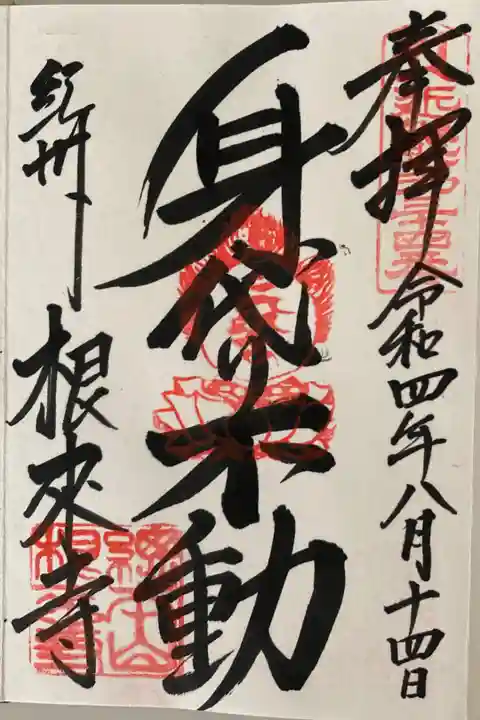 奉拝 令和四年八月十四日
身代り不動
紀州 根來寺